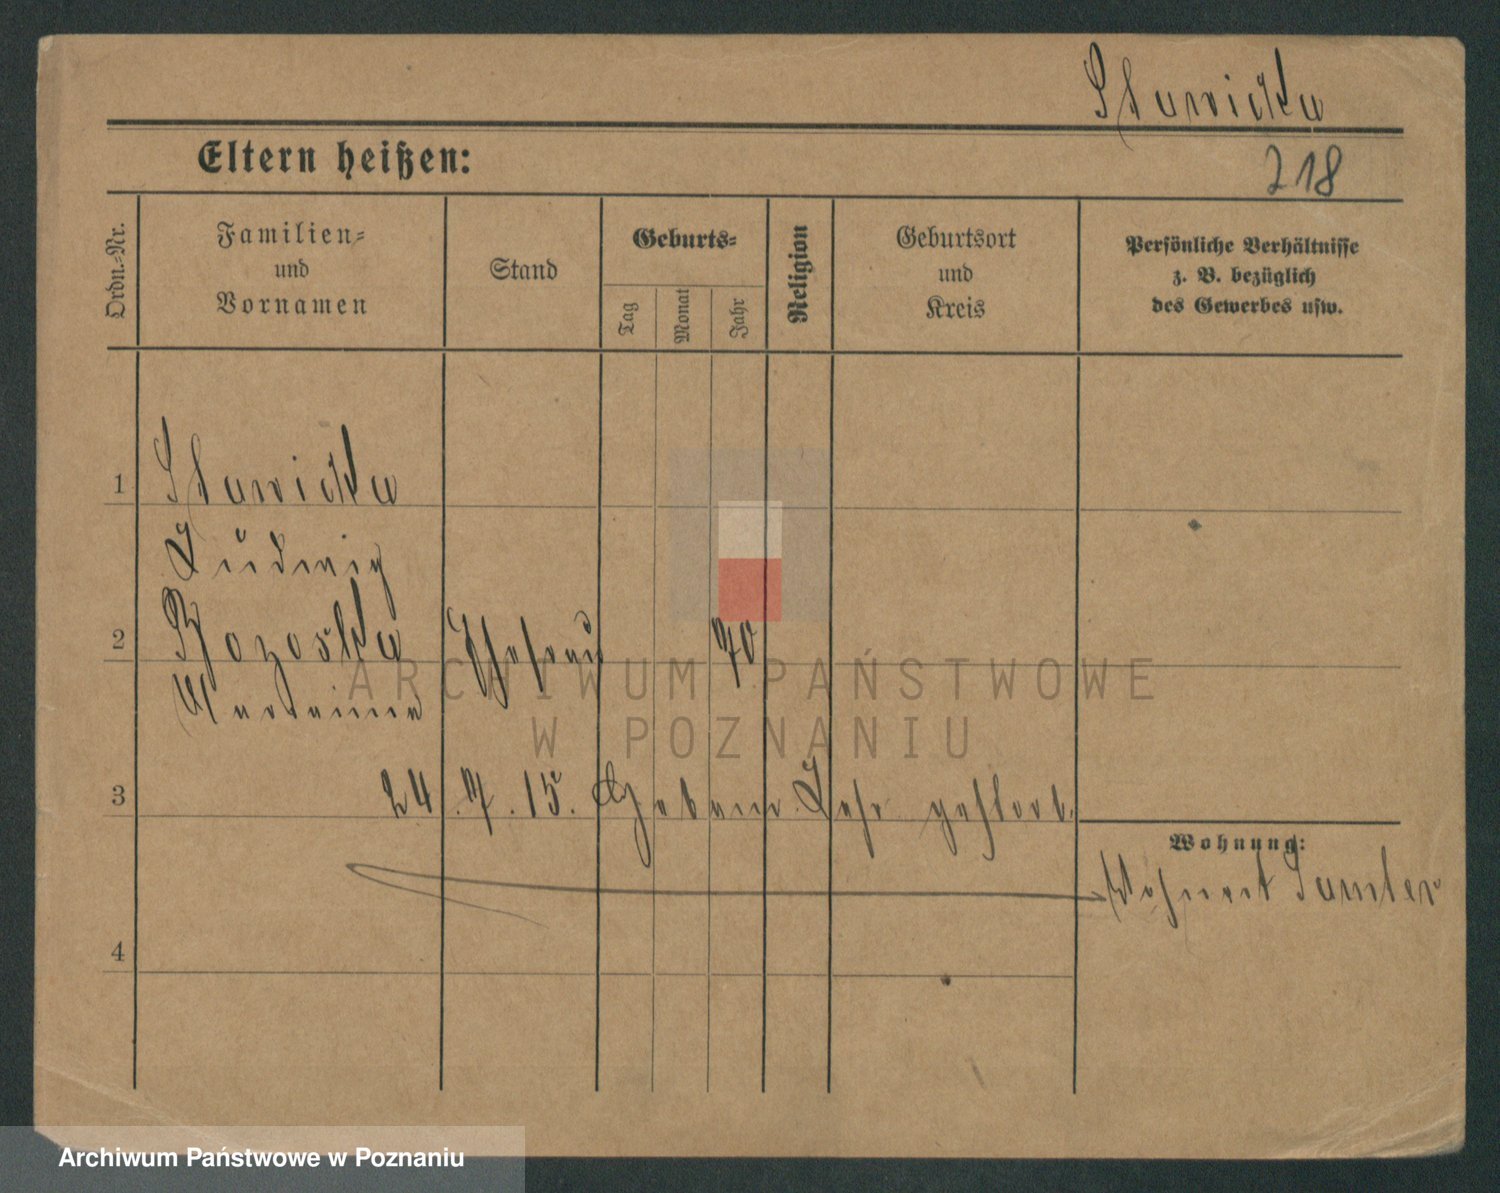 Stawicka
Eltern heißen:
218
Ordn.-Nr.
Familien-
und
Vornamen
Stand
Geburts-
Tag
Monat
Jahr
Religion
Geburtsort
und
Kreis
Persönliche Verhältnisse
z. B. bezüglich
des Gewerbes usw.
1
Stawicka
Ludwig
2
Ehefrau
70
ARCHIWUM PAŃSTWOWE
W POZNANIU
3
24.7.15.
gestorb.
Wohnung:
Wohnort Samter
4
Archiwum Państwowe w Poznaniu